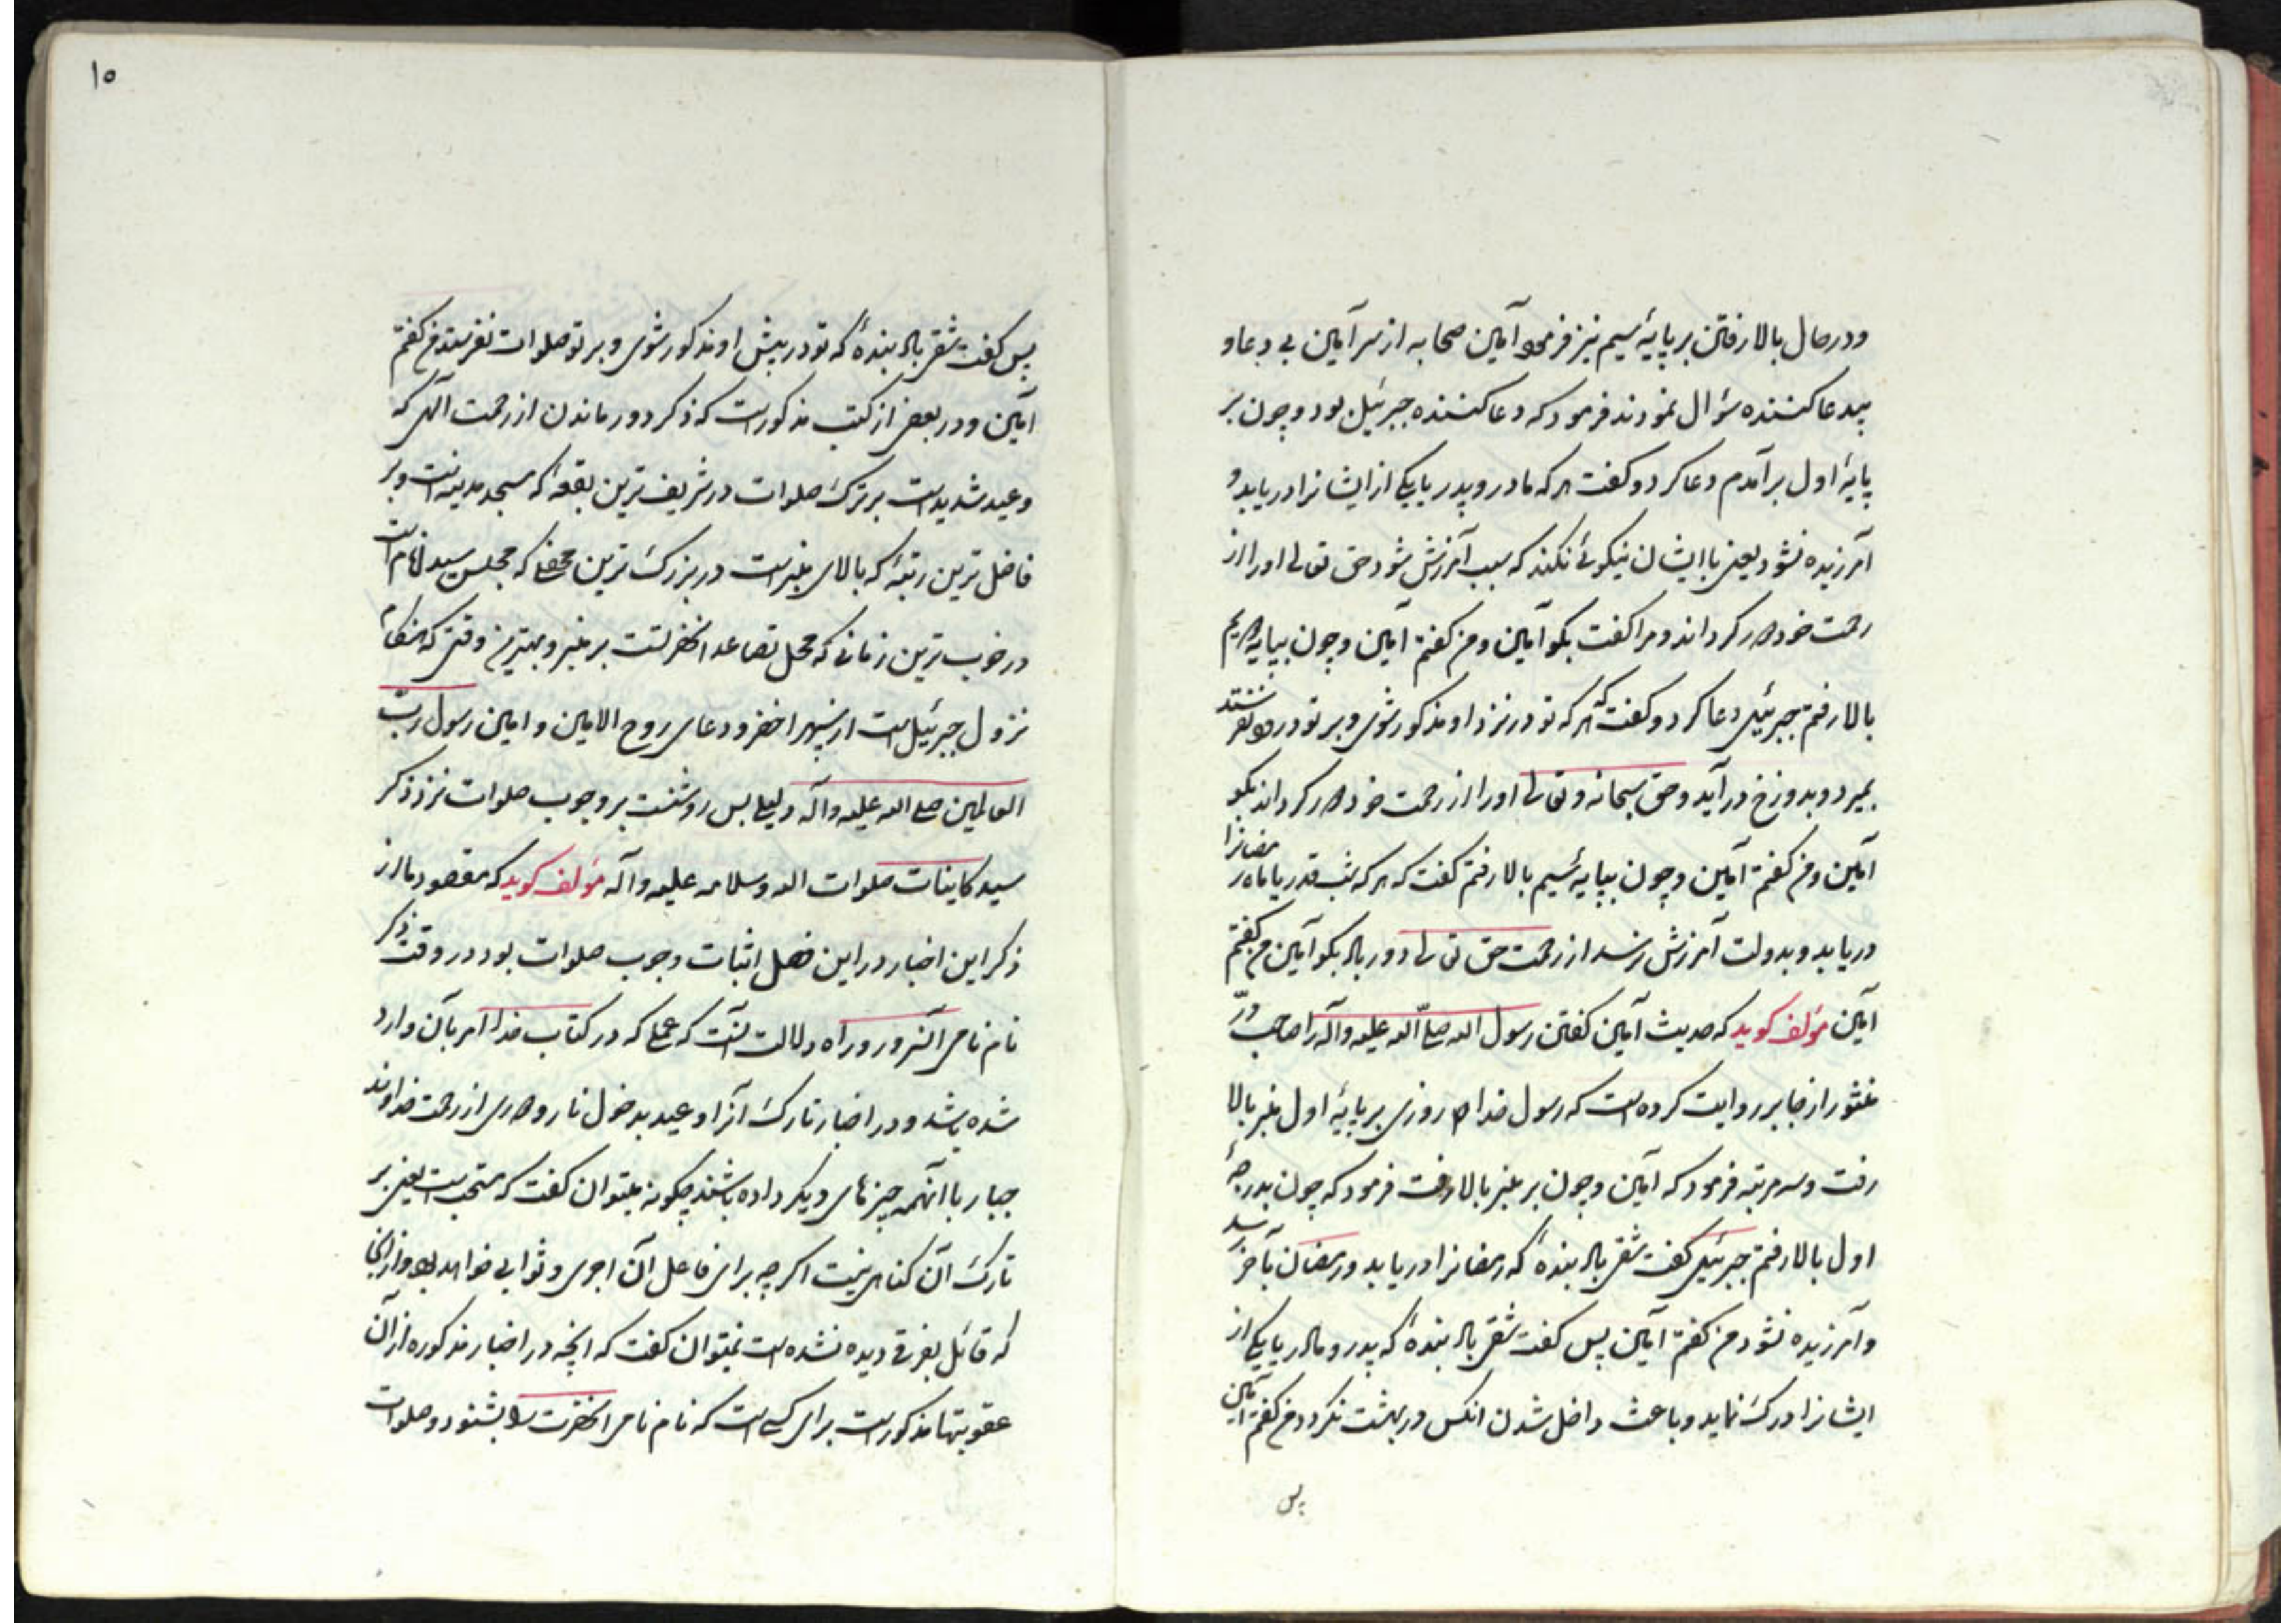 ودر حال بالا رفتن بر پایهٔ سیم نیز فرمود آمین صحابه از سر آمین بی دعا و
پید عا کننده سؤال نمودند فرمود که دعا کننده جبرئیل بود و چون بر
پایهٔ اول برآمدم دعا کرد و کفت هر که مادر و پدر یا یکی از ایشانرا دریابد و
آمرزیده نشود یعنی با ایشان نیکوئی نکند که سبب آمرزش شود حق تعالی او را از
رحمت خود دور کرداند و مرا کفت بکو آمین و من کفتم آمین و چون بپایه دویم
بالا رفتم جبرئیل دعا کرد و کفت که هر که تو در نزد او مذکور شوی و بر تو درود نفرستد
بمیرد و بدوزخ در آید و حق سبحانه و تعالی او را از رحمت خود دور کرداند بکو
آمین و من کفتم آمین و چون بپایه سیم بالا رفتم کفت که هر که شب قدر یا ماه رمضانرا
دریابد و بدولت آمرزش نرسد از رحمت حق تعالی دور باد بکو آمین من کفتم
آمین مؤلف کوید که حدیث آمین کفتن رسول الله صلّی الله علیه وآله را صاحب درّ
منثور از جابر روایت کرده است که رسول خدا ص روزی بر پایهٔ اول منبر بالا
رفت و سه مرتبه فرمود که آمین و چون بر منبر بالا رفت فرمود که چون بدرجهٔ
اول بالا رفتم جبرئیل کفت شقی باد بندهٔ که رمضانرا دریابد و رمضان بآخر رسد
و آمرزیده نشود من کفتم آمین پس کفت شقی باد بندهٔ که پدر و مادر یا یکی از
ایشانرا درک نماید و باعث داخل شدن انکس در بهشت نکردد من کفتم آمین
پس
۱۰
پس کفت شقی باد بندهٔ که تو در پیش او مذکور شوی و بر تو صلوات نفرستد من کفتم
آمین و در بعضی از کتب مذکور است که ذکر دور ماندن از رحمت آلهی که
وعید شدید است بر ترک صلوات در شریف ترین بقعهٔ که مسجد مدینه است و بر
فاضل ترین رتبهٔ که بالای منبر است در بزرک ترین محفلی که مجلس سید انام است
در خوب ترین زمانی که محل تصاعد انحضرتست بر منبر و بهترین وقتی که هنکام
نزول جبرئیل است از سپهر اخضر و دعای روح الامین و امین رسول ربّ
العالمین صلی الله علیه وآله دلیلی بس روشنست بر وجوب صلوات نزد ذکر
سید کاینات صلوات الله وسلامه علیه وآله مؤلف کوید که مقصود ما از
ذکر این اخبار در این فصل اثبات وجوب صلوات بود در وقت ذکر
نام نامی آنسرور و راه دلالت آنست که عملی که در کتاب خدا امر بآن وارد
شده باشد و در اخبار تارک آنرا وعید بدخول نار و دوری از رحمت خداوند
جبار با آنهمه چیزهای دیکر داده باشند چکونه میتوان کفت که مستحب است یعنی بر
تارک آن کناهی نیست اکر چه برای فاعل آن اجری و ثوابی خواهد بود و از آنجا
که قائل بفرقی دیده نشده است نمیتوان کفت که انچه در اخبار مذکوره از آن
عقوبتها مذکور است برای کسی است که نام نامی انحضرت را بشنود و صلوات